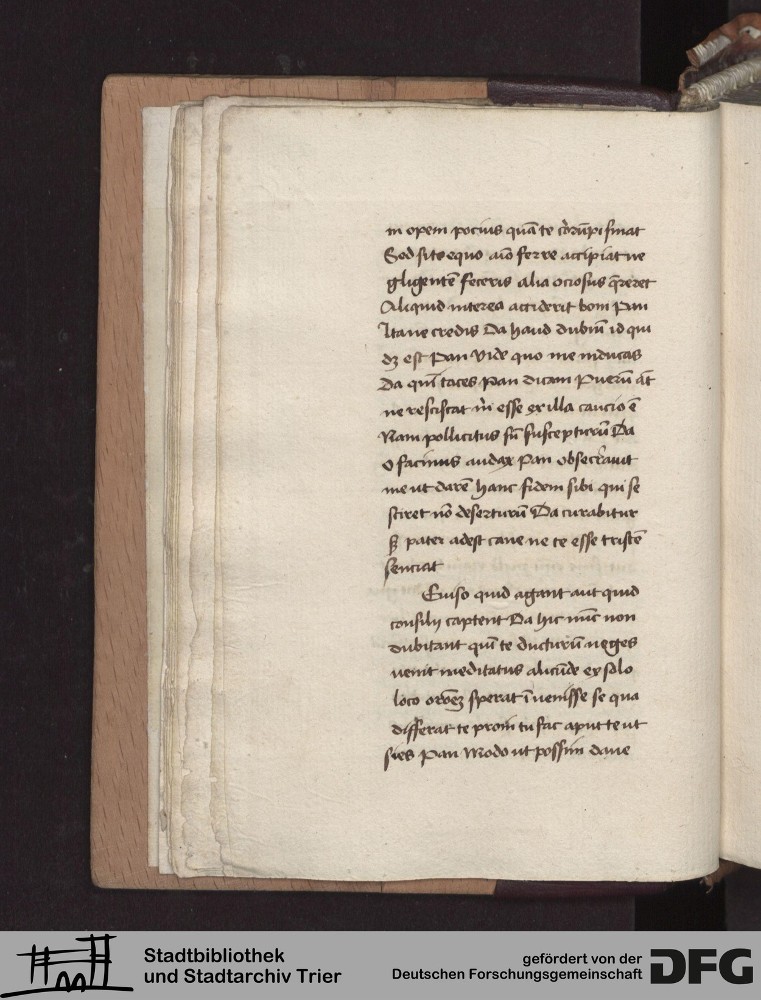 in opem pocius quā te corrūpi sinat
Sed si te equo aīo ferre accipiat ne
gligentē feceris alia ociosus q̄reret
Aliquid interea acciderit boni Pan
Itane credis Da haud dubiū id qui
dʒ est Pan vide quo me inducas
Da quī taces Pan dicam Puerū āt
ne resciscat m̄ esse ex illa caucio ē
Nam pollicitus sū suscepturū Da
O facinus audax Pan obsecravit
me ut darē hanc fidem sibi qui se
sciret nō deserturū Da curabitur
ß pater adest cave ne te esse tristē
senciat
Reviso quid agant aut quid
consilij captent Da hic nūc non
dubitant quī te ducturū neges
venit meditatus alicūde ex solo
loco orōeʒ sperat īvenisse se qua
differat te proin tu fac aput te ut
sies Pan Modo ut possim dave
Stadtbibliothek
und Stadtarchiv Trier
gefördert von der
Deutschen Forschungsgemeinschaft
DFG